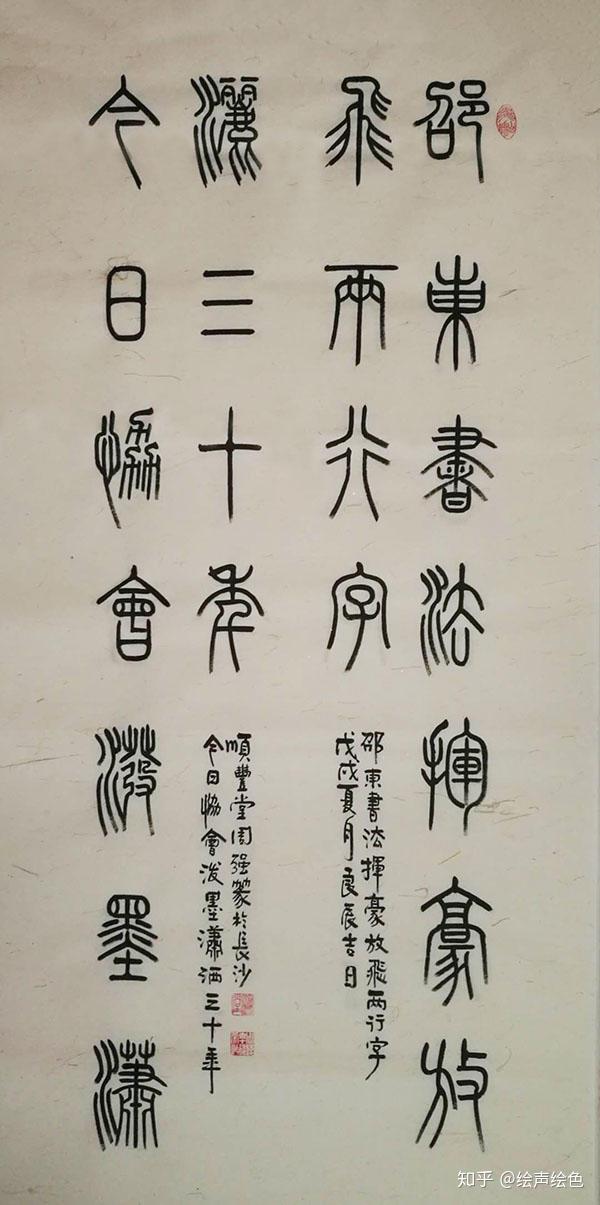 邵東書法揮豪放
飛兩行字
邵東書法揮豪放飛两行字
戊戌夏月良辰吉日
今日恊會潑墨瀟
灑三十年
今日恊會泼墨瀟洒三十年
順豐堂周强篆於長沙
知乎 @绘声绘色